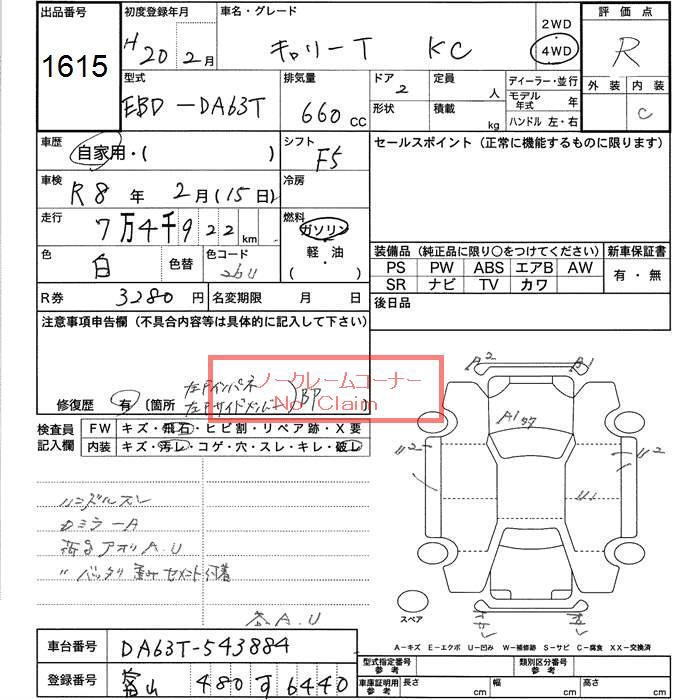 出品番号 初度登録年月 車名・グレード 2WD 評価点
1615 H20 2月 キャリーT KC 4WD R
型式 排気量 ドア 定員 ディーラー・並行 外装 内装
EBD-DA63T 660 CC 2 人 モデル年式 年 C
形状 積載 kg ハンドル 左・右
車歴 自家用・( ) シフト F5 セールスポイント (正常に機能するものに限ります)
車検 R8年 2月(15日) 冷房
走行 7万4千922km 燃料 ガソリン
軽・油
( )
色 白 色替 色コード 26U
装備品 (純正品に限り○をつけてください) 新車保証書
PS PW ABS エアB AW 有・無
SR ナビ TV カワ
R券 3280円 名変期限 月 日 後日品
注意事項申告欄 (不具合内容等は具体的に記入して下さい)
ノークレームコーナー
No Claim
修復歴 有 〔箇所 BP
検査員記入欄 FW キズ・飛石・ヒビ割・リペア跡・X要
内装 キズ・汚レ・コゲ・穴・スレ・キレ・破レ
A2 B1
A1
U2 U2
U1
ハンドルスレ
カミラーA
荷台アオリA.U
〃 バッタリ 歪み セメント付着
A.U
スペア
A-キズ E-エクボ U-凹み W-補修跡 S-サビ C-腐食 XX-交換済
車台番号 DA63T-543884 型式指定番号 参考 類別区分番号 参考
登録番号 富山 480 す 6440 車庫証明用 参考 長さ cm 幅 cm 高さ cm